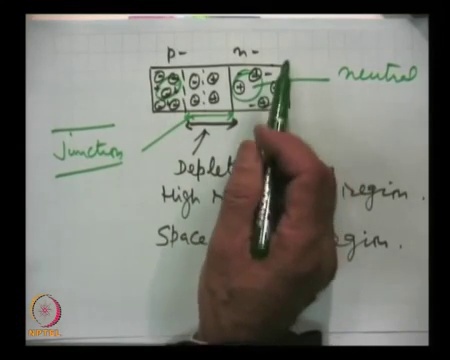 p- n-
neutral
Junction
Deplet
High region.
Space region.
NPTEL